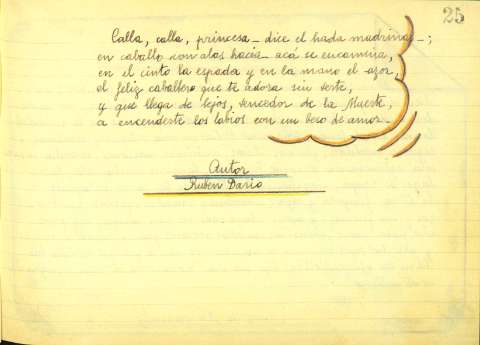 25
Calla, calla, princesa _ dice el hada madrina _;
en caballo con alas hacia acá se encamina,
en el cinto la espada y en la mano el azor,
el feliz caballero que te adora sin verte,
y que llega de lejos, vencedor de la Muerte,
a encenderte los labios con un beso de amor.
Autor
Rubén Dario